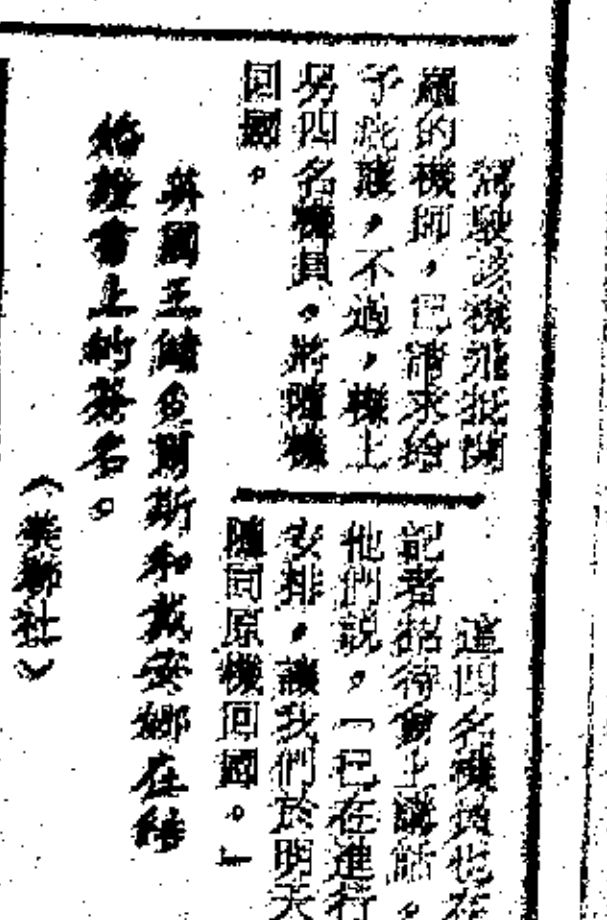 駕駛該機飛抵關
島的機師，已請求給
予庇護，不過，機上
另四名機員，將隨機
回國。
這四名機員也在
記者招待會上講話。
他們說，「已在進行
安排，讓我們於明天
隨同原機回國。」
英國王儲查爾斯和戴安娜在結
婚證書上的簽名。
（美聯社）